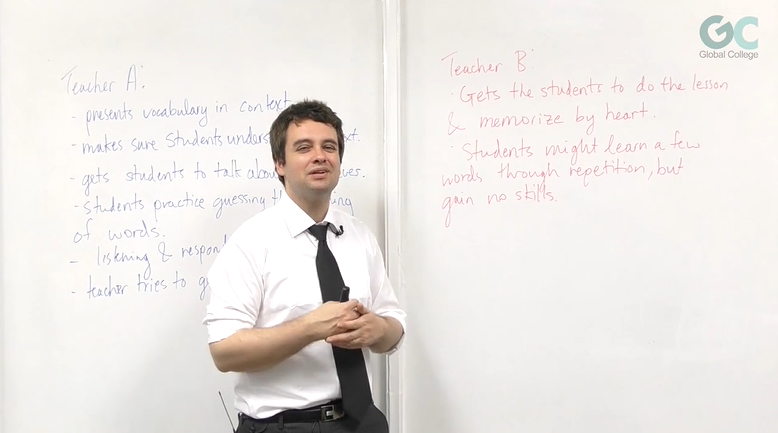 Teacher A:
- presents vocabulary in context
- makes sure Students
- gets students to talk
- Students practice guessing
of words.
- listening &
- teacher tries to
Teacher B:
· Gets the students to do the lesson
& memorize by heart.
· Students might learn a few
words through repetition, but
gain no skills.
GC
Global College